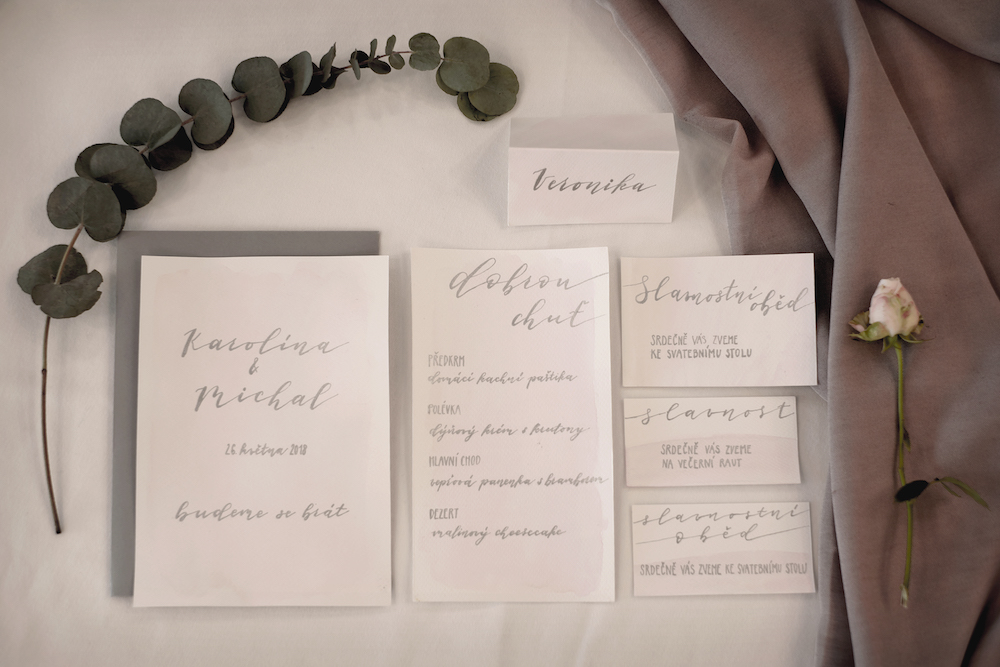 Veronika
Karolína
&
Michal
26 května 2018
budeme se brát
dobrou
chuť
PŘEDKRM
domácí kachní paštika
POLÉVKA
dýňový krém s krutony
HLAVNÍ CHOD
vepřová panenka s bramborem
DEZERT
malinový cheesecake
Slavnostní
oběd
SRDEČNĚ VÁS ZVEME
KE SVATEBNÍMU STOLU
slavnost
SRDEČNĚ VÁS ZVEME
NA VEČERNÍ RAUT
slavnostní
oběd
SRDEČNĚ VÁS ZVEME KE SVATEBNÍMU STOLU